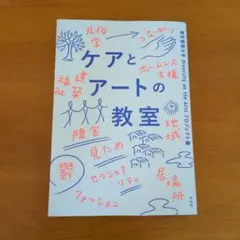 民俗学
つながり
ケアと
アートの
教室
ホームレス
支援
建築
福祉
地域
障害
見ため
セクシュア
リティ
居場所
ファッション
東京藝術大学 Diversity on the Arts プロジェクト 編
左右社